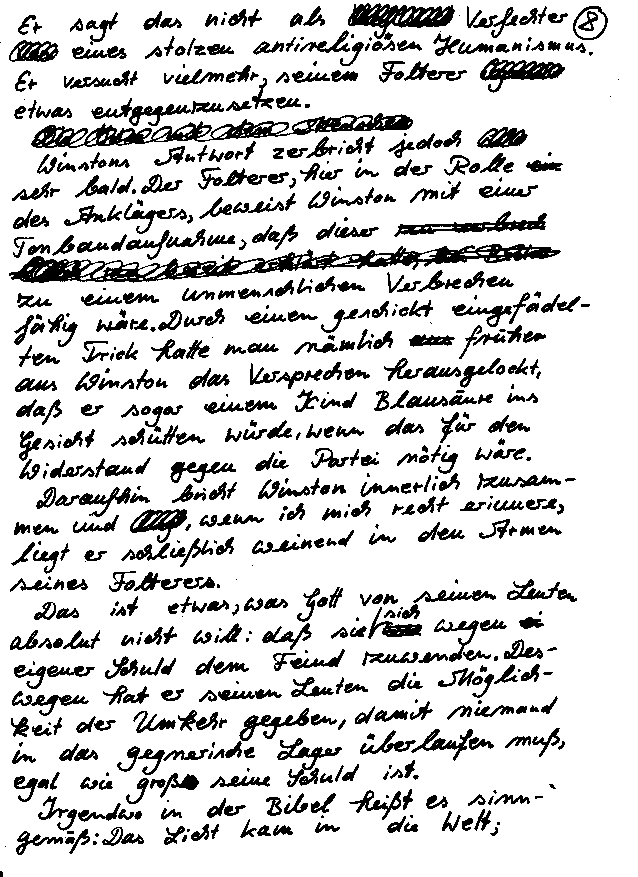 Er sagt das nicht als Verfechter 8
eines stolzen antireligiösen Humanismus.
Er versucht vielmehr, seinem Folterer
etwas entgegenzusetzen.
Winstons Antwort zerbricht jedoch
sehr bald. Der Folterer, hier in der Rolle
des Anklägers, beweist Winston mit einer
Tonbandaufnahme, daß dieser
zu einem unmenschlichen Verbrechen
fähig wäre. Durch einen geschickt eingefädel-
ten Trick hatte man nämlich früher
aus Winston das Versprechen herausgelockt,
daß er sogar einem Kind Blausäure ins
Gesicht schütten würde, wenn das für den
Widerstand gegen die Partei nötig wäre.
Daraufhin bricht Winston innerlich zusam-
men und , wenn ich mich recht erinnere,
liegt er schließlich weinend in den Armen
seines Folterers.
Das ist etwas, was Gott von seinen Leuten
absolut nicht will: daß sie sich wegen
eigener Schuld dem Feind zuwenden. Des-
wegen hat er seinen Leuten die Möglich-
keit der Umkehr gegeben, damit niemand
in das gegnerische Lager überlaufen muß,
egal wie groß seine Schuld ist.
Irgendwo in der Bibel heißt es sinn-
gemäß: Das Licht kam in die Welt;